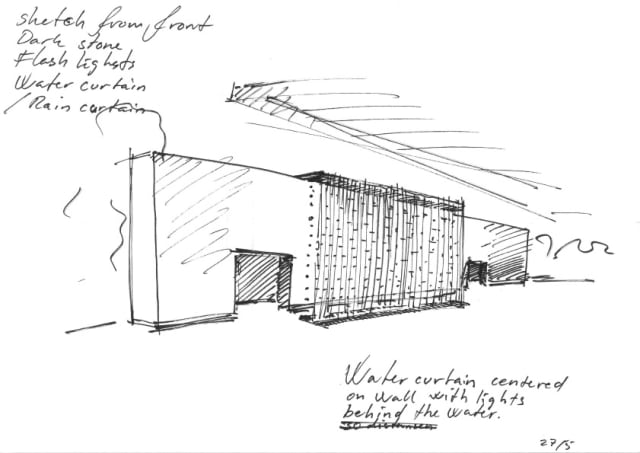 sketch from front
Dark stone
Flash lights
Water curtain
/Rain curtain
Water curtain centered
on wall with lights
behind the water.
27/5